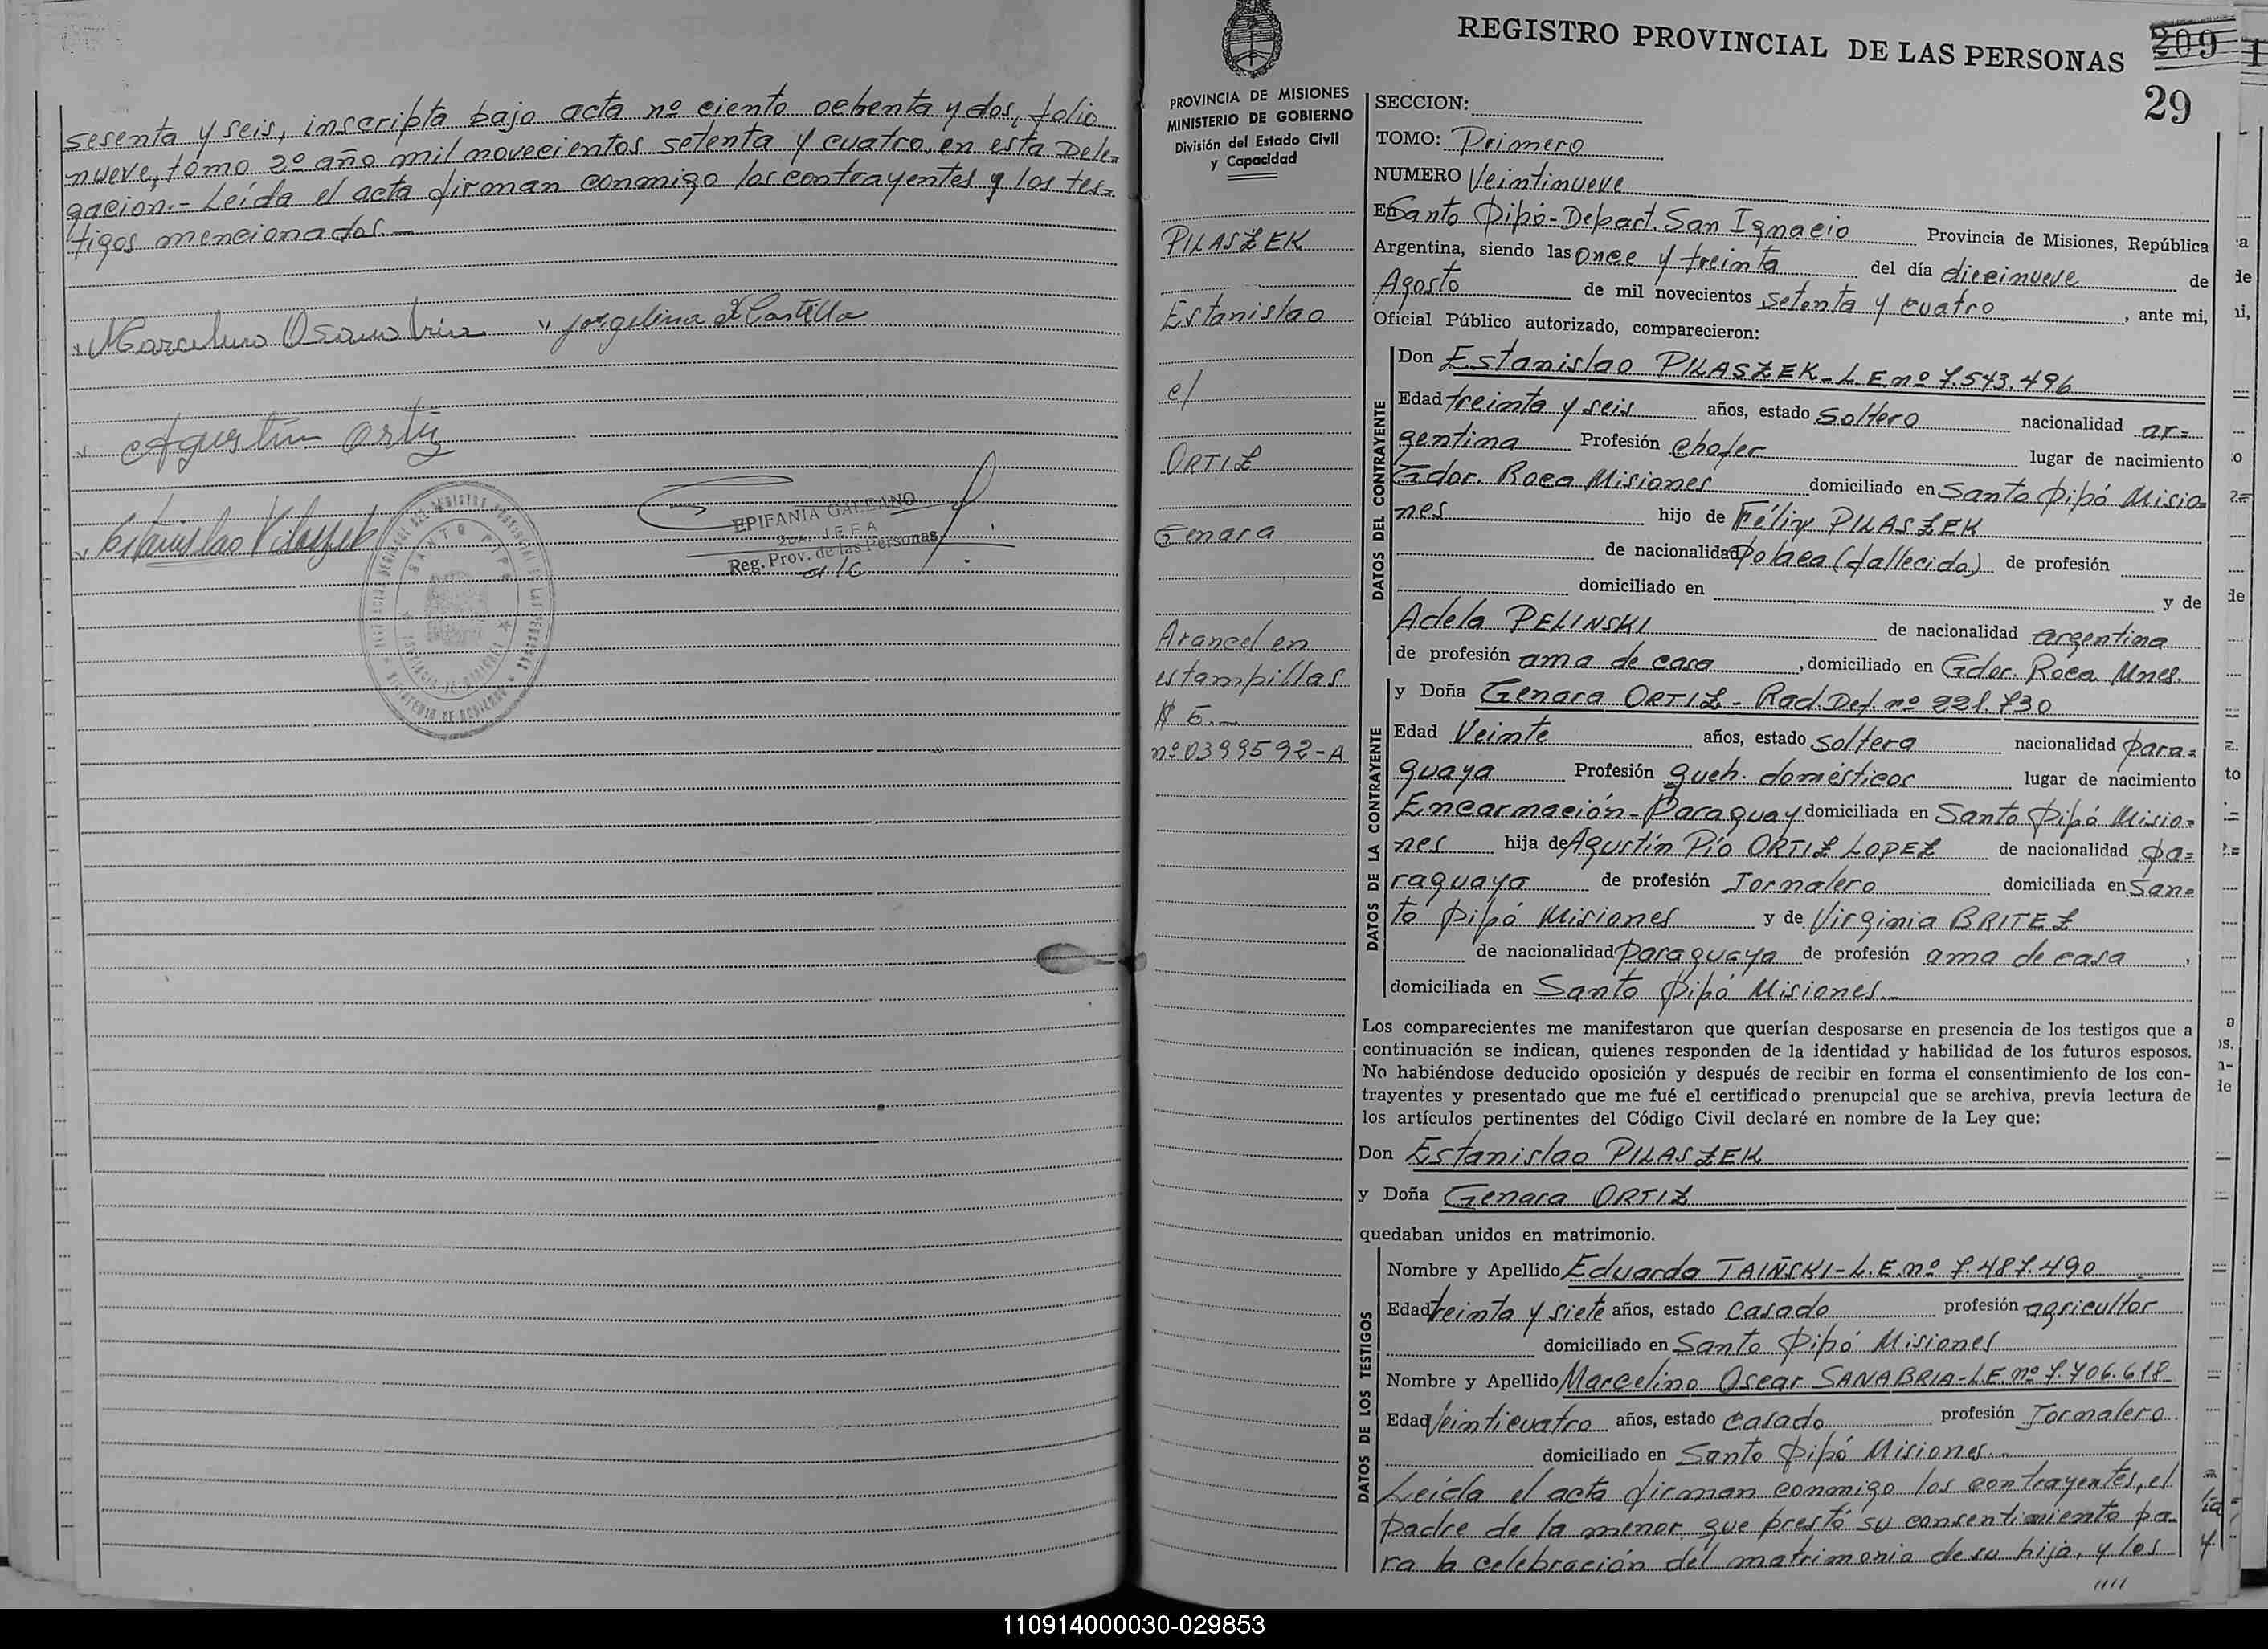 sesenta y seis, inscripta bajo acta nº ciento ochenta y dos, folio
nueve, tomo 2º año mil novecientos setenta y cuatro, en esta Dele=
gacion.- Leída el acta firman conmigo los contrayentes y los tes=
tigos mencionados.-
Marcelino O Sanabria Jorgelina F Castillo
Agustin Ortiz
Estanislao Pilaszek
EPIFANIA GALEANO
JEFA
Reg. Prov. de las Personas
REGISTRO PROVINCIAL DE LAS PERSONAS 209
29
PROVINCIA DE MISIONES
MINISTERIO DE GOBIERNO
División del Estado Civil
y Capacidad
PILASZEK
Estanislao
c/
ORTIZ
Genara
Arancel en
estampillas
$ 5.-
nº 0399592-A
SECCION:
TOMO: Primero
NUMERO Veintinueve
En Santo Pipó-Depart. San Ignacio Provincia de Misiones, República
Argentina, siendo las once y treinta del día diecinueve de
Agosto de mil novecientos setenta y cuatro, ante mi,
Oficial Público autorizado, comparecieron:
DATOS DEL CONTRAYENTE
Don Estanislao PILASZEK-L.E nº 7.543.496
Edad treinta y seis años, estado soltero nacionalidad ar=
gentina Profesión chofer lugar de nacimiento
Gdor. Roca Misiones domiciliado en Santo Pipó Misio=
nes hijo de Félix PILASZEK
de nacionalidad polaca (fallecido) de profesión
domiciliado en y de
Adela PELINSKI de nacionalidad argentina
de profesión ama de casa, domiciliado en Gdor. Roca Mnes.
DATOS DE LA CONTRAYENTE
y Doña Genara ORTIZ - Rad. Def. nº 221.730
Edad Veinte años, estado soltera nacionalidad para=
guaya Profesión queh. domésticos lugar de nacimiento
Encarnación-Paraguay domiciliada en Santo Pipó Misio=
nes hija de Agustín Pío ORTIZ LOPEZ de nacionalidad pa=
raguayo de profesión Jornalero domiciliada en San=
to Pipó Misiones y de Virginia BRITEZ
de nacionalidad paraguaya de profesión ama de casa,
domiciliada en Santo Pipó Misiones.-
Los comparecientes me manifestaron que querían desposarse en presencia de los testigos que a
continuación se indican, quienes responden de la identidad y habilidad de los futuros esposos.
No habiéndose deducido oposición y después de recibir en forma el consentimiento de los con-
trayentes y presentado que me fué el certificado prenupcial que se archiva, previa lectura de
los artículos pertinentes del Código Civil declaré en nombre de la Ley que:
Don Estanislao PILASZEK
y Doña Genara ORTIZ
quedaban unidos en matrimonio.
DATOS DE LOS TESTIGOS
Nombre y Apellido Eduardo TAIÑSKI-L.E.nº 7.487.490
Edad treinta y siete años, estado casado profesión agricultor
domiciliado en Santo Pipó Misiones
Nombre y Apellido Marcelino Oscar SANABRIA-L.E.nº 7.706.618
Edad Veinticuatro años, estado casado profesión Jornalero
domiciliado en Santo Pipó Misiones.-
Leída el acta firman conmigo los contrayentes, el
padre de la menor que prestó su consentimiento pa-
ra la celebración del matrimonio de su hija, y los
////
110914000030-029853